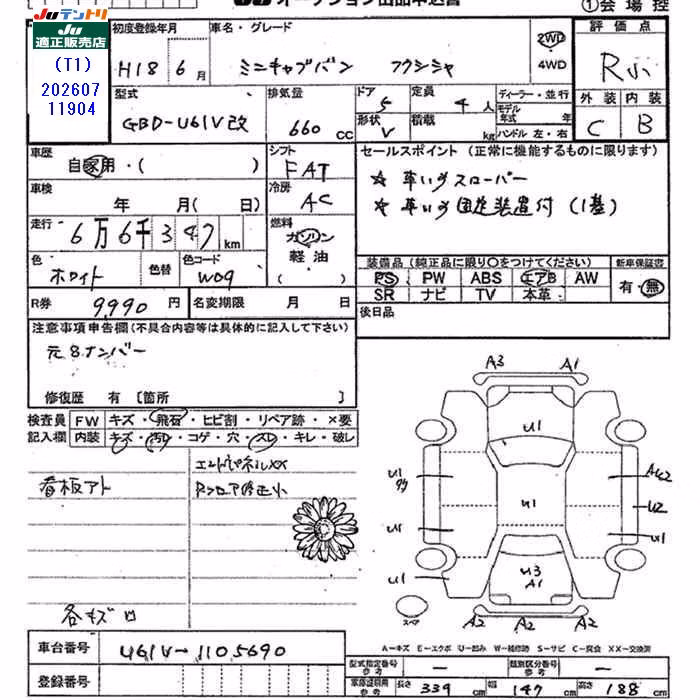 JUテントリ
JU オークション出品申込書
①会場控
JU
適正販売店
(T1)
202607
11904
初度登録年月
車名・グレード
評価点
H18 6月
ミニキャブバン
2WD
4WD
R小
型式
排気量
ドア
定員
ディーラー・並行
外装 内装
GBD-U61V改
660 CC
5
4人
モデル年式 年
C B
形状
積載
V
kg
ハンドル 左・右
車歴
自家用・( )
シフト
FAT
セールスポイント (正常に機能するものに限ります)
☆ 車いすスローパー
☆ 車いす固定装置付 (1基)
車検
年 月( 日)
冷房
AC
走行
6万6千347km
燃料
ガソリン
軽油
( )
色
ホワイト
色替
色コード
W09
装備品 (純正品に限り○をつけてください)
新車保証書
PS PW ABS エアB AW
SR ナビ TV 本革
有・無
R券
9,990円
名変期限 月 日
後日品
注意事項申告欄 (不具合内容等は具体的に記入して下さい)
元8ナンバー
修復歴 有 [箇所 ]
検査員
記入欄
FW キズ・飛石・ヒビ割・リペア跡・×要
内装 キズ・汚レ・コゲ・穴・スレ・キレ・破レ
エンドパネルXX
看板アト
Rフロア修正小
各キズ凹
A3 A1
U1
U1
A4U2
U1
U2
U1
U1
U1
U3
A1
A2 A2 A2
スペア
A-キズ E-エクボ U-凹み W-補修跡 S-サビ C-腐食 XX-交換済
車台番号
U61V-1105690
登録番号
型式指定番号
参考
—
類別区分番号
参考
—
車庫証明用
参考
長さ 339cm
幅 147cm
高さ 188cm